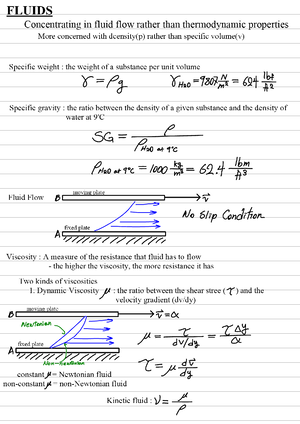 FLUIDS
Concentrating in fluid flow rather than thermodynamic properties
More concerned with dcensity(p) rather than specific volume(v)
Specific weight : the weight of a substance per unit volume
γ = ρg γH2O = 9807 N/m³ = 62.4 lbf/ft³
Specific gravity : the ratio between the density of a given substance and the density of
water at 9°C
SG = ρ / ρH2O at 9°C
ρH2O at 9°C = 1000 kg/m³ = 62.4 lbm/ft³
Fluid Flow B moving plate v
No Slip Condition
A fixed plate
Viscosity : A measure of the resistance that fluid has to flow
- the higher the viscosity, the more resistance it has
Two kinds of viscosities
1. Dynamic Viscosity μ : the ratio between the shear stree (τ) and the
velocity gradient (dv/dy)
B moving plate v = α
Newtonian
μ = τ / dv/dy = τ Δy / α
A fixed plate
Non-Newtonian
τ = μ dv/dy
constant μ = Newtonian fluid
non-constant μ = non-Newtonian fluid
Kinetic fluid : ν = μ/ρ